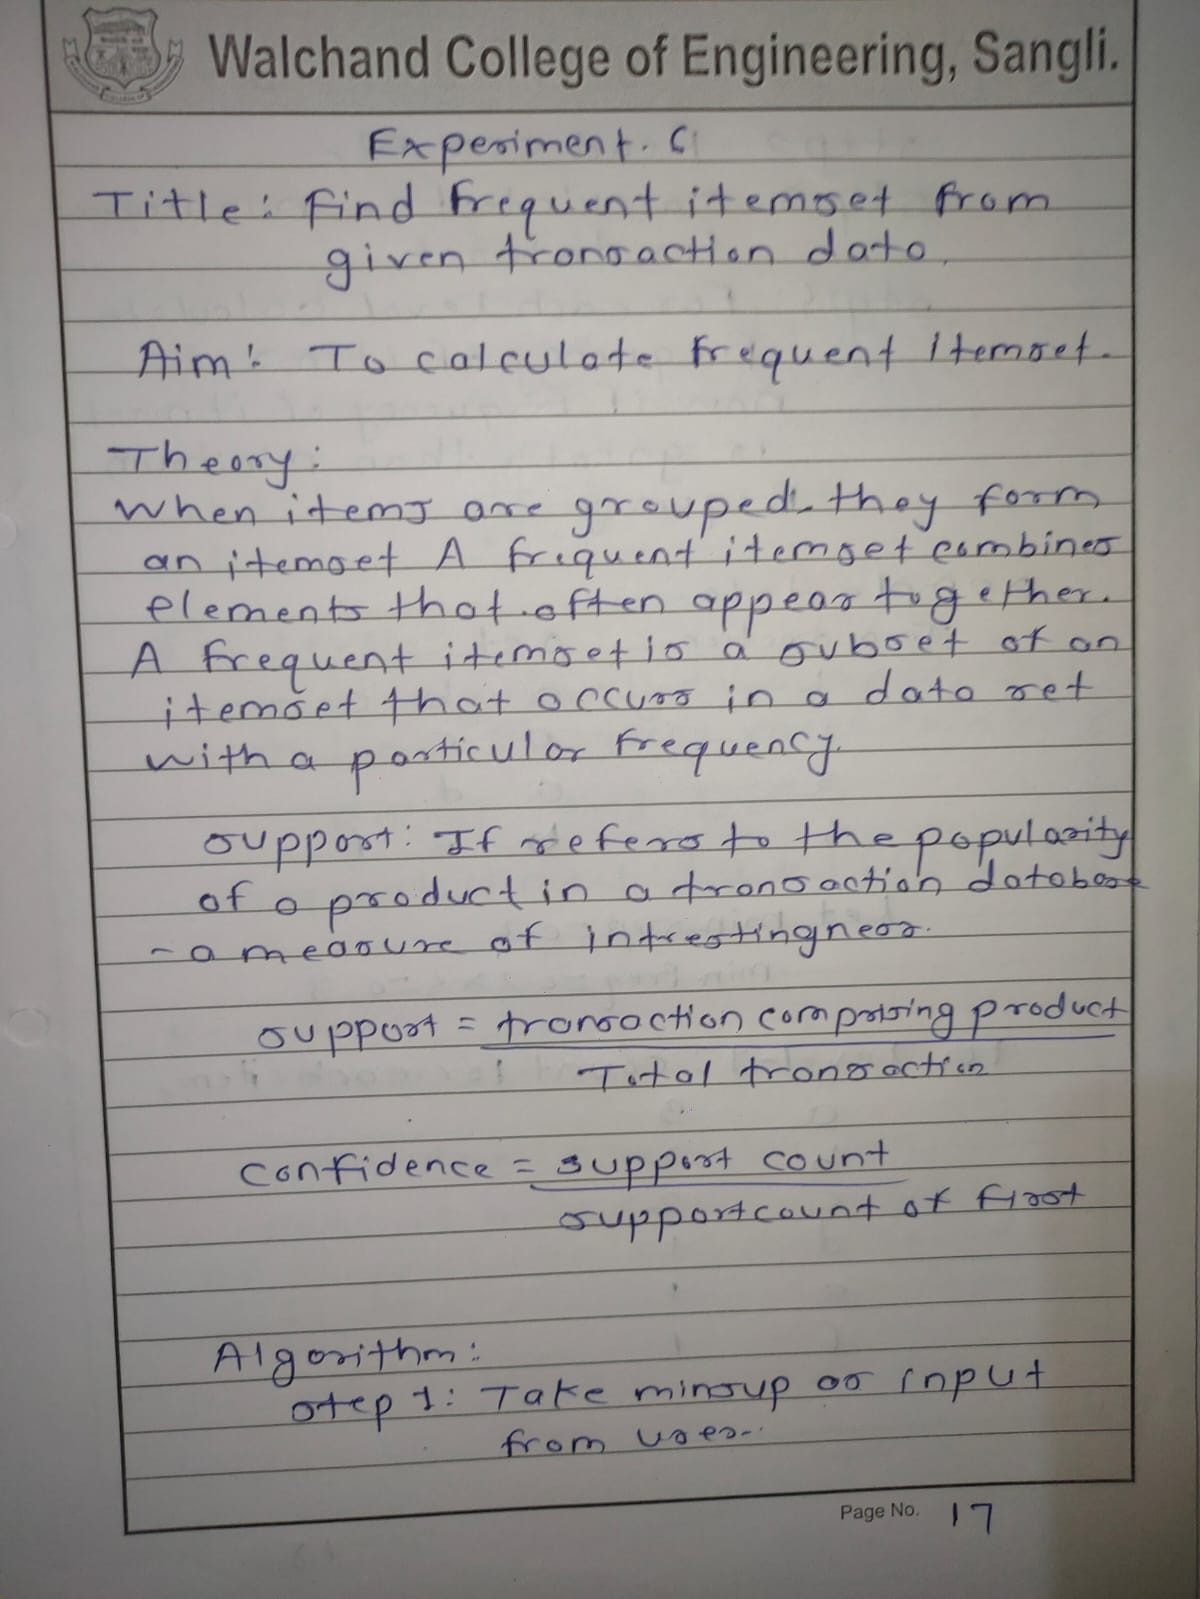 Walchand College of Engineering, Sangli.
Experiment. 6
Title: Find frequent itemset from
given transaction data.
Aim: To calculate frequent itemset.
Theory:
When items are grouped, they form
an itemset A frequent itemset combines
elements that often appear together.
A frequent itemset is a subset of an
itemset that occurs in a data set
with a particular frequency.
support: If refers to the popularity
of a product in a transaction
- a measure of intrestingness.
support = transaction comprising product
Total transaction
Confidence = support count
support count of first
Algorithm:
step 1: Take minsup as input
from user.
Page No. 17